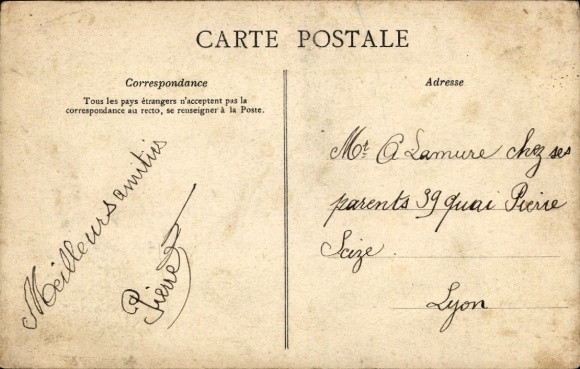 CARTE POSTALE
Correspondance
Tous les pays étrangers n'acceptent pas la
correspondance au recto, se renseigner à la Poste.
Meilleurs amitiés
Pierre
Adresse
Mr A Lamure chez ses
parents 39 quai Pierre
Scize.
Lyon